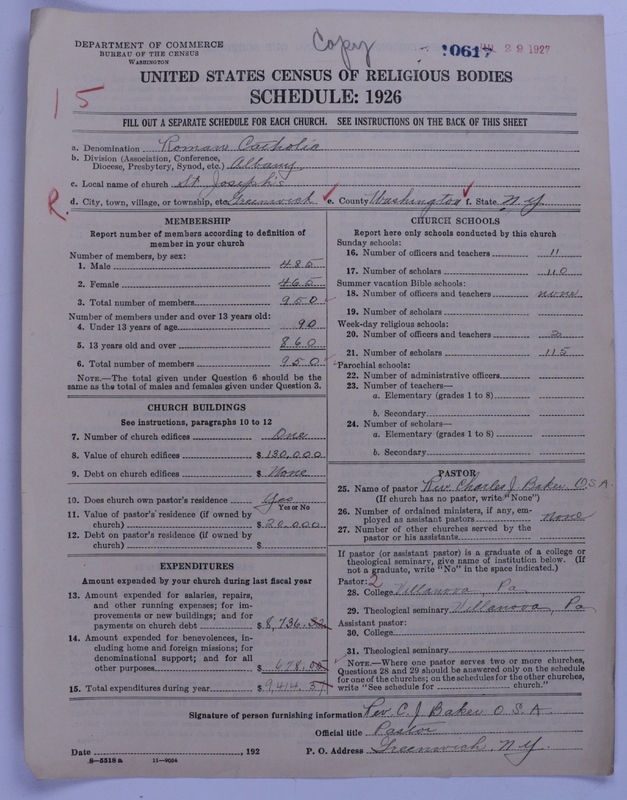 DEPARTMENT OF COMMERCE
BUREAU OF THE CENSUS
WASHINGTON
Copy
10617
JUL 29 1927
UNITED STATES CENSUS OF RELIGIOUS BODIES
SCHEDULE: 1926
15
FILL OUT A SEPARATE SCHEDULE FOR EACH CHURCH. SEE INSTRUCTIONS ON THE BACK OF THIS SHEET
a. Denomination Roman Catholic
b. Division (Association, Conference, Diocese, Presbytery, Synod, etc.) Albany
c. Local name of church St. Joseph's
R.
d. City, town, village, or township, etc. Greenwich e. County Washington f. State N.Y.
MEMBERSHIP
Report number of members according to definition of
member in your church
Number of members, by sex:
1. Male 485
2. Female 465
3. Total number of members 950
Number of members under and over 13 years old:
4. Under 13 years of age 90
5. 13 years old and over 860
6. Total number of members 950
NOTE.—The total given under Question 6 should be the
same as the total of males and females given under Question 3.
CHURCH BUILDINGS
See instructions, paragraphs 10 to 12
7. Number of church edifices One
8. Value of church edifices $ 130,000
9. Debt on church edifices $ None
10. Does church own pastor's residence Yes
Yes or No
11. Value of pastor's residence (if owned by
church) $ 20,000
12. Debt on pastor's residence (if owned by
church) $
EXPENDITURES
Amount expended by your church during last fiscal year
13. Amount expended for salaries, repairs,
and other running expenses; for im-
provements or new buildings; and for
payments on church debt $ 8,736.32
14. Amount expended for benevolences, in-
cluding home and foreign missions; for
denominational support; and for all
other purposes $ 678.05
15. Total expenditures during year $ 9,414.37
CHURCH SCHOOLS
Report here only schools conducted by this church
Sunday schools:
16. Number of officers and teachers 11
17. Number of scholars 110
Summer vacation Bible schools:
18. Number of officers and teachers none
19. Number of scholars
Week-day religious schools:
20. Number of officers and teachers 2
21. Number of scholars 115
Parochial schools:
22. Number of administrative officers
23. Number of teachers—
a. Elementary (grades 1 to 8)
b. Secondary
24. Number of scholars—
a. Elementary (grades 1 to 8)
b. Secondary
PASTOR
25. Name of pastor Rev. Charles J. Baker O.S.A.
(If church has no pastor, write "None")
26. Number of ordained ministers, if any, em-
ployed as assistant pastors none
27. Number of other churches served by the
pastor or his assistants
If pastor (or assistant pastor) is a graduate of a college or
theological seminary, give name of institution below. (If
not a graduate, write "No" in the space indicated.)
Pastor: 2
28. College Villanova, Pa
29. Theological seminary Villanova, Pa
Assistant pastor:
30. College
31. Theological seminary
NOTE.—Where one pastor serves two or more churches,
Questions 28 and 29 should be answered only on the schedule
for one of the churches; on the schedules for the other churches,
write "See schedule for church."
Signature of person furnishing information Rev. C. J. Baker O.S.A.
Official title Pastor
Date , 192 P. O. Address Greenwich, N.Y.
8—5518 a 11—9054